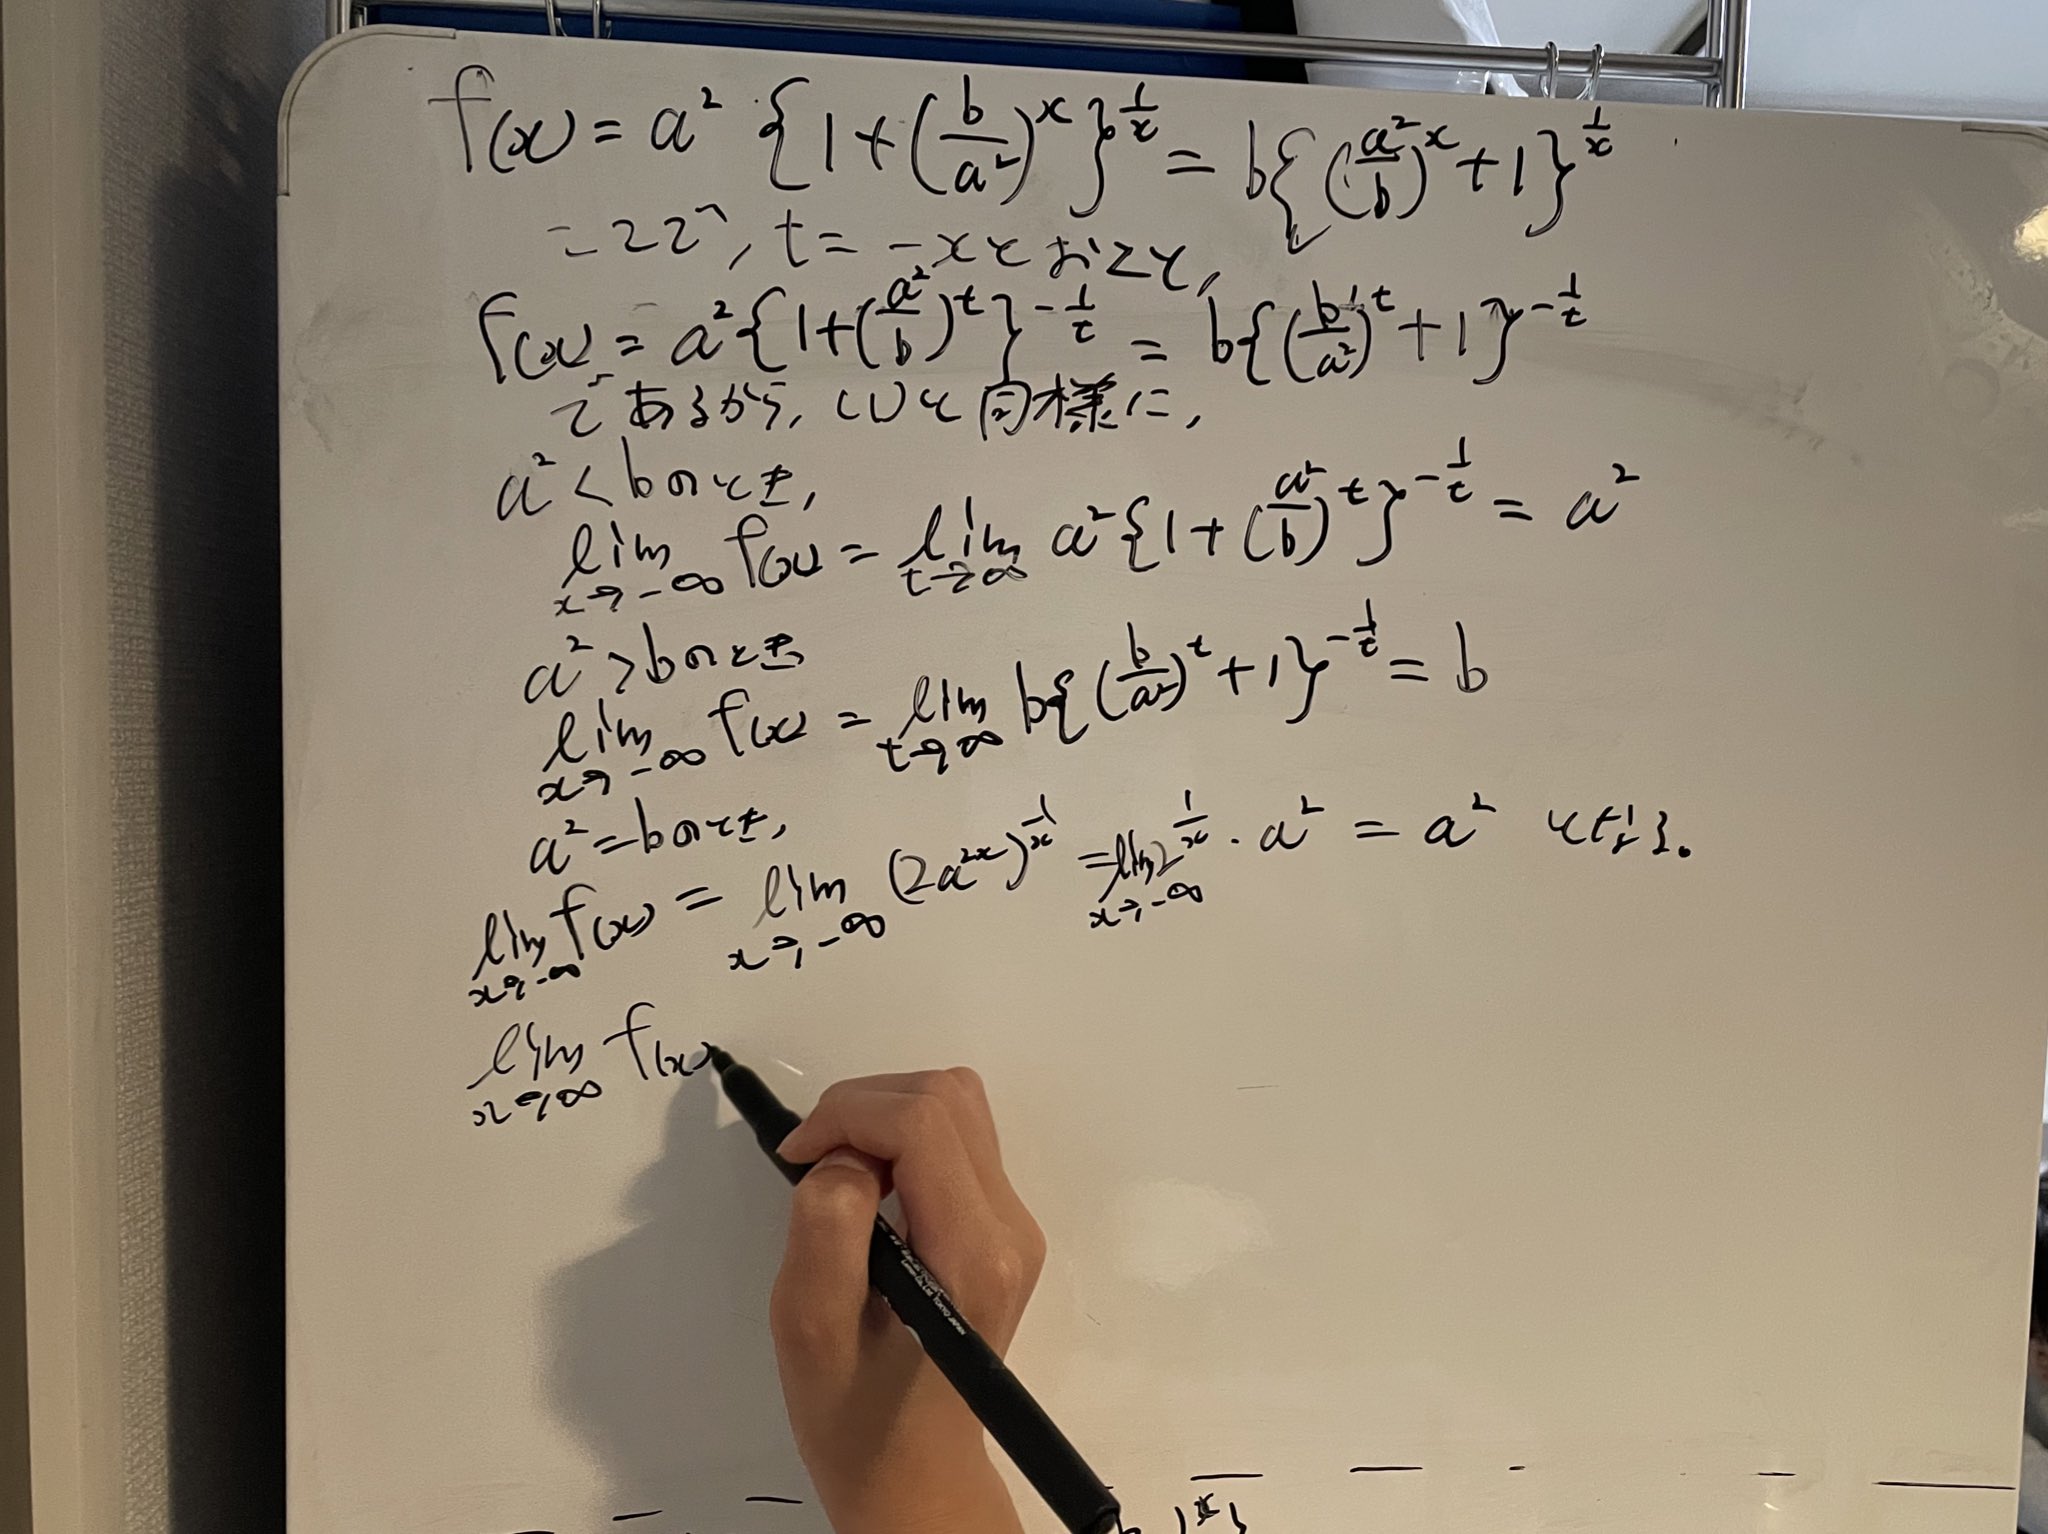 f(x) = a² {1+(b/a²)^x}^{1/x} = b{(a²/b)^x+1}^{1/x}
ここで, t = -xとおくと,
f(x) = a²{1+(a²/b)^t}^{-1/t} = b{(b/a²)^t+1}^{-1/t}
であるから, (1)と同様に,
a²<bのとき,
lim_{x→-∞} f(x) = lim_{t→∞} a²{1+(a²/b)^t}^{-1/t} = a²
a²>bのとき
lim_{x→-∞} f(x) = lim_{t→∞} b{(b/a²)^t+1}^{-1/t} = b
a²=bのとき,
lim_{x→-∞} f(x) = lim_{x→-∞} (2a^{2x})^{1/x} = lim_{x→-∞} 2^{1/x}・a² = a² となる。
lim_{x→∞} f(x)